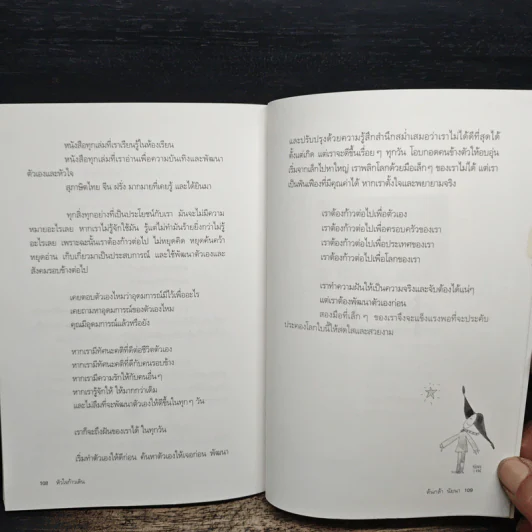 หนังสือทุกเล่มที่เราเรียนรู้ในห้องเรียน
หนังสือทุกเล่มที่เราอ่านเพื่อความบันเทิงและพัฒนา
ตัวเองและหัวใจ
สุภาษิตไทย จีน ฝรั่ง มากมายที่เคยรู้ และได้ยินมา
ทุกสิ่งทุกอย่างที่เป็นประโยชน์กับเรา มันจะไม่มีความ
หมายอะไรเลย หากเราไม่รู้จักใช้มัน รู้แต่ไม่ทำมันร้ายยิ่งกว่าไม่รู้
อะไรเลย เพราะฉะนั้นเราต้องก้าวต่อไป ไม่หยุดคิด หยุดค้นคว้า
หยุดอ่าน เก็บเกี่ยวมาเป็นประสบการณ์ และใช้พัฒนาตัวเองและ
สังคมรอบข้างต่อไป
เคยตอบตัวเองไหมว่าอุดมการณ์มีไว้เพื่ออะไร
เคยถามหาอุดมการณ์ของตัวเองไหม
คุณมีอุดมการณ์แล้วหรือยัง
หากเรามีทัศนะคติที่ดีต่อชีวิตตัวเอง
หากเรามีทัศนะคติที่ดีกับคนรอบข้าง
หากเรามีความรักให้กับคนอื่นๆ
หากเรารู้จักให้ ให้มากกว่าเดิม
และไม่ลืมที่จะพัฒนาตัวเองให้ดีขึ้นในทุกๆ วัน
เราก็จะถึงฝันของเราได้ ในทุกวัน
เริ่มทำตัวเองให้ดีก่อน ค้นหาตัวเองให้เจอก่อน พัฒนา
108 หัวใจก้าวเดิน
และปรับปรุงด้วยความรู้สึกสำนึกสม่ำเสมอว่าเราไม่ได้ดีที่สุดได้
ตั้งแต่เกิด แต่เราจะดีขึ้นเรื่อยๆ ทุกวัน โอบกอดคนข้างตัวให้อบอุ่น
เริ่มจากเล็กไปหาใหญ่ เราพลิกโลกด้วยมือเล็กๆ ของเราไม่ได้ แต่เรา
เป็นฟันเฟืองที่มีคุณค่าได้ หากเราตั้งใจและพยายามจริง
เราต้องก้าวต่อไปเพื่อตัวเอง
เราต้องก้าวต่อไปเพื่อครอบครัวของเรา
เราต้องก้าวต่อไปเพื่อประเทศของเรา
เราต้องก้าวต่อไปเพื่อโลกของเรา
เราทำความฝันให้เป็นความจริงและจับต้องได้แน่ๆ
แต่เราต้องพัฒนาตัวเองก่อน
สองมือที่เล็กๆ ของเราจึงจะแข็งแรงพอที่จะประคับ
ประคองโลกใบนี้ให้สดใสและสวยงาม
109